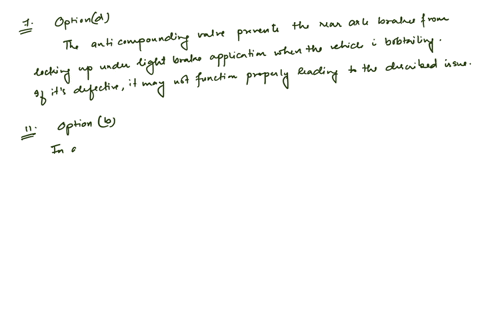 7. Option(d)
The anti compounding valve prevents the rear axle brakes from
locking up under light brake application when the vehicle i bobtailing.
If it's defective, it may not function properly leading to the described issue.
11. Option (b)
In a